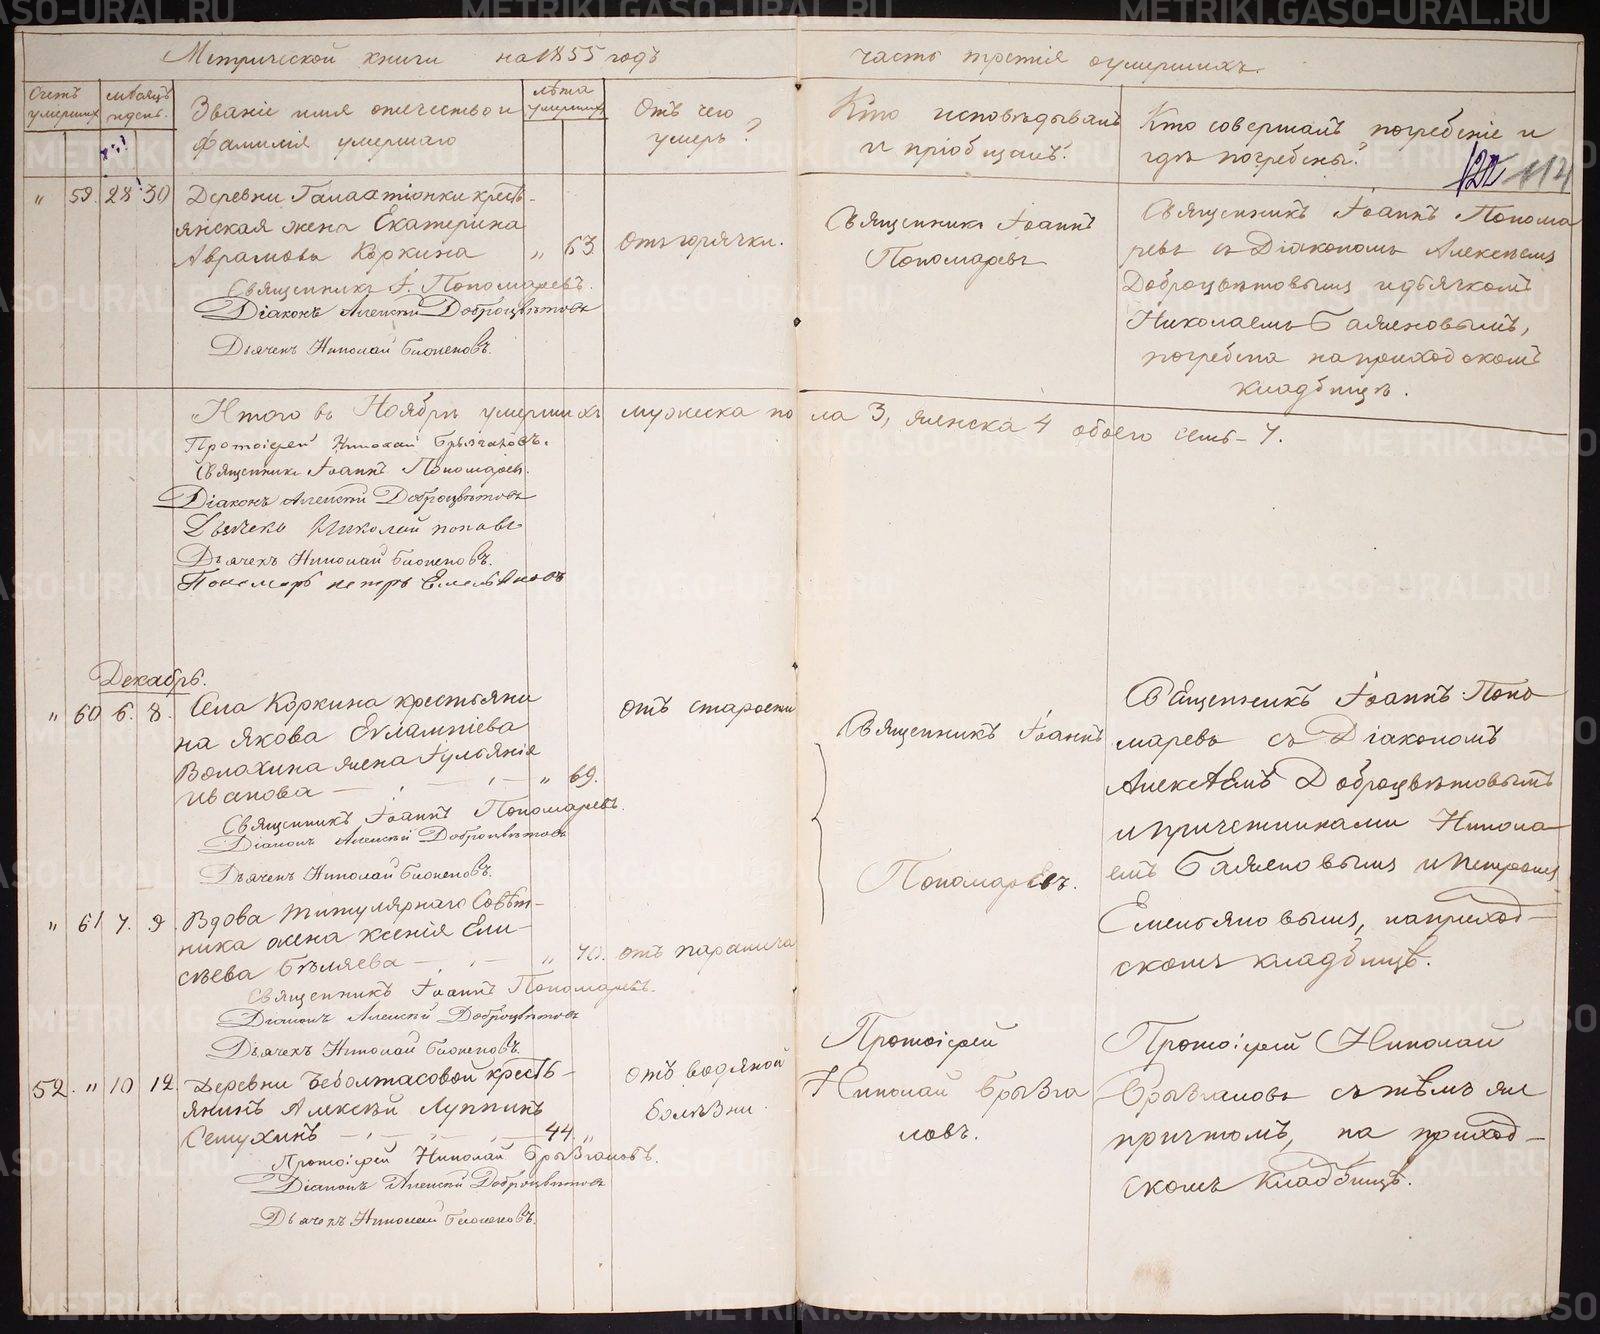 Метрической книги на 1855 годъ
часть третія оумершихъ.
Счетъ умершихъ
мѣсяцъ и день.
Званіе имя отчество и фамилія умершаго
лѣта умершихъ
Отъ чего умеръ?
Кто исповѣдывалъ и пріобщалъ?
Кто совершалъ погребеніе и гдѣ погребены?
114
" 59. 28 30
Деревни крестьянская жена Екатерина
Аврамова Коркина " 63
Отъ горячки.
Священникъ Іоаннъ
Пономаревъ
Священникъ Іоаннъ Понома
ревъ съ Діакономъ Алексѣемъ
Доброцвѣтовымъ и дьячкомъ
Николаемъ Баженовымъ,
погребена на приходскомъ
кладбищѣ.
Священникъ І. Пономаревъ.
Діаконъ Алексѣй Доброцвѣтовъ
Дьячекъ Николай Баженовъ.
Итого въ Ноябрѣ умершихъ мужеска пола 3, женска 4 обоего семь 7.
Протоіерей Николай Брызгаловъ.
Священникъ Іоаннъ Пономаревъ.
Діаконъ Алексѣй Доброцвѣтовъ
Дьячекъ Николай поповъ
Дьячекъ Николай Баженовъ.
Пономарь петръ Емельяновъ
Декабрь.
" 60 6. 8.
Села Коркина крестьяни
на Якова Евлампіева
Волохина жена Іуліанія
Иванова " 69.
отъ старости
Священникъ Іоаннъ
Пономаревъ.
Священникъ Іоаннъ Поно
маревъ съ Діакономъ
Алексѣемъ Доброцвѣтовымъ
и причетниками Никола
емъ Баженовымъ и Петромъ
Емельяновымъ, на приход-
скомъ кладбищѣ.
Священникъ Іоаннъ Пономаревъ.
Діаконъ Алексѣй Доброцвѣтовъ
Дьячекъ Николай Баженовъ.
" 61 7. 9.
Вдова титулярнаго Совѣт-
ника жена ксенія Ели-
сѣева Бѣляева " 70.
отъ паралича
Священникъ Іоаннъ Пономаревъ.
Діаконъ Алексѣй Доброцвѣтовъ
Дьячекъ Николай Баженовъ.
52. " 10 12.
Деревни кресть-
янинъ Алексѣй Луппинъ
Сетухинъ 44 "
отъ водяной
болѣзни.
Протоіерей
Николай Брызга
ловъ.
Протоіерей Николай
Брызгаловъ съ тѣмъ же
причтомъ, на приход-
скомъ кладбищѣ.
Протоіерей Николай Брызгаловъ.
Діаконъ Алексѣй Доброцвѣтовъ
Дьячекъ Николай Баженовъ.
METRIKI.GASO-URAL.RU